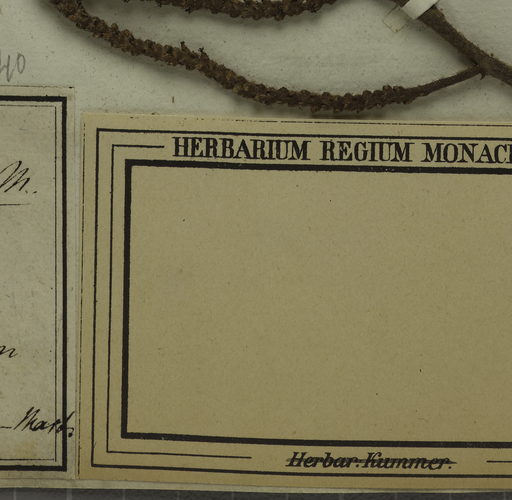 40
M.
HERBARIUM REGIUM MONAC
Mart.
Herbar. Kummer.